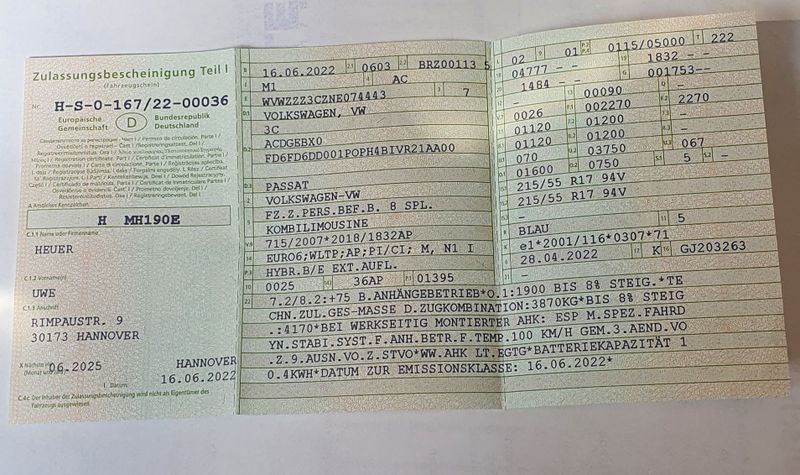 Zulassungsbescheinigung Teil I
(Fahrzeugschein)
Nr. H-S-O-167/22-00036
Europäische Gemeinschaft
D
Bundesrepublik Deutschland
A Amtliches Kennzeichen
H MH190E
C.1.1 Name oder Firmenname
HEUER
C.1.2 Vorname(n)
UWE
C.1.3 Anschrift
RIMPAUSTR. 9
30173 HANNOVER
06.2025
HANNOVER
I. Datum:
16.06.2022
C.4c Der Inhaber der Zulassungsbescheinigung wird nicht als Eigentümer des Fahrzeugs ausgewiesen.
B 16.06.2022 2.1 0603 2.2 BRZ00113 5
J M1 4 AC
E WVWZZZ3CZNE074443 3 7
D.1 VOLKSWAGEN, VW
3C
D.2 ACDGEBX0
FD6FD6DD001POPH4BIVR21AA00
D.3 PASSAT
2 VOLKSWAGEN-VW
FZ.Z.PERS.BEF.B. 8 SPL.
5 KOMBILIMOUSINE
V.9 715/2007*2018/1832AP
14 EURO6;WLTP;AP;PI/CI; M, N1 I
P.3 HYBR.B/E EXT.AUFL.
10 0025 14.1 36AP P.1 01395
22 7.2/8.2:+75 B.ANHÄNGEBETRIEB*O.1:1900 BIS 8% STEIG.*TE
CHN.ZUL.GES-MASSE D.ZUGKOMBINATION:3870KG*BIS 8% STEIG
.:4170*BEI WERKSEITIG MONTIERTER AHK: ESP M.SPEZ.FAHRD
YN.STABI.SYST.F.ANH.BETR.F.TEMP.100 KM/H GEM.3.AEND.VO
.Z.9.AUSN.VO.Z.STVO*WW.AHK LT.EGTG*BATTERIEKAPAZITÄT 1
0.4KWH*DATUM ZUR EMISSIONSKLASSE: 16.06.2022*
L 02 9 01 P.2 P.4 0115/05000 T 222
18 04777 - - 19 1832 - -
20 1484 - - G 001753--
12 - 13 00090 Q -
V.7 0026 F.1 002270 F.2 2270
7.1 01120 7.2 01200 7.3 -
8.1 01120 8.2 01200 8.3 -
U.1 070 U.2 03750 U.3 067
O.1 01600 O.2 0750 S.1 5 S.2 -
15.1 215/55 R17 94V
15.2 215/55 R17 94V
15.3 -
R BLAU 11 5
K e1*2001/116*0307*71
6 28.04.2022 17 K 16 GJ203263
21 -